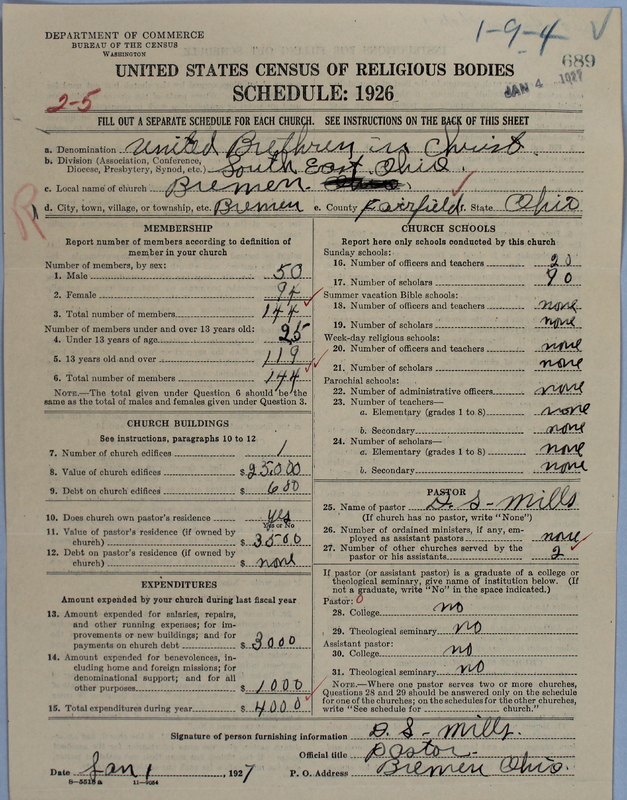 DEPARTMENT OF COMMERCE
BUREAU OF THE CENSUS
WASHINGTON
1-9-4 V
689
JAN 4 1927
UNITED STATES CENSUS OF RELIGIOUS BODIES
SCHEDULE: 1926
2-5
FILL OUT A SEPARATE SCHEDULE FOR EACH CHURCH. SEE INSTRUCTIONS ON THE BACK OF THIS SHEET
a. Denomination United Brethren in Christ
b. Division (Association, Conference, Diocese, Presbytery, Synod, etc.) South East Ohio.
c. Local name of church Bremen
R
d. City, town, village, or township, etc. Bremen e. County Fairfield f. State Ohio
MEMBERSHIP
Report number of members according to definition of
member in your church
Number of members, by sex:
1. Male 50
2. Female 94
3. Total number of members 144
Number of members under and over 13 years old:
4. Under 13 years of age 25
5. 13 years old and over 119
6. Total number of members 144
NOTE.—The total given under Question 6 should be the
same as the total of males and females given under Question 3.
CHURCH BUILDINGS
See instructions, paragraphs 10 to 12
7. Number of church edifices 1
8. Value of church edifices $25000
9. Debt on church edifices $600
10. Does church own pastor's residence yes
Yes or No
11. Value of pastor's residence (if owned by
church) $3500
12. Debt on pastor's residence (if owned by
church) $none
EXPENDITURES
Amount expended by your church during last fiscal year
13. Amount expended for salaries, repairs,
and other running expenses; for im-
provements or new buildings; and for
payments on church debt $3000
14. Amount expended for benevolences, in-
cluding home and foreign missions; for
denominational support; and for all
other purposes $1000
15. Total expenditures during year $4000
CHURCH SCHOOLS
Report here only schools conducted by this church
Sunday schools:
16. Number of officers and teachers 20
17. Number of scholars 90
Summer vacation Bible schools:
18. Number of officers and teachers none
19. Number of scholars none
Week-day religious schools:
20. Number of officers and teachers none
21. Number of scholars none
Parochial schools:
22. Number of administrative officers none
23. Number of teachers—
a. Elementary (grades 1 to 8) none
b. Secondary none
24. Number of scholars—
a. Elementary (grades 1 to 8) none
b. Secondary none
PASTOR
25. Name of pastor D. S- Mills
(If church has no pastor, write "None")
26. Number of ordained ministers, if any, em-
ployed as assistant pastors none
27. Number of other churches served by the
pastor or his assistants 2
If pastor (or assistant pastor) is a graduate of a college or
theological seminary, give name of institution below. (If
not a graduate, write "No" in the space indicated.)
Pastor: 0
28. College no
29. Theological seminary no
Assistant pastor:
30. College no
31. Theological seminary no
NOTE.—Where one pastor serves two or more churches,
Questions 28 and 29 should be answered only on the schedule
for one of the churches; on the schedules for the other churches,
write "See schedule for church."
Signature of person furnishing information D. S- Mills.
Official title Pastor-
Date Jan 1, 1927 P. O. Address Bremen Ohio.
8-5518a 11-9084